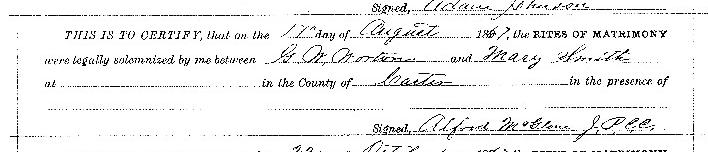 Signed, Adam Johnson
THIS IS TO CERTIFY, that on the 17th day of August 1867, the RITES OF MATRIMONY
were legally solemnized by me between G. W. and Mary Smith
at in the County of Carter in the presence of
Signed, Alfred McGlone J.P.C.C.
RITES OF MATRIMONY